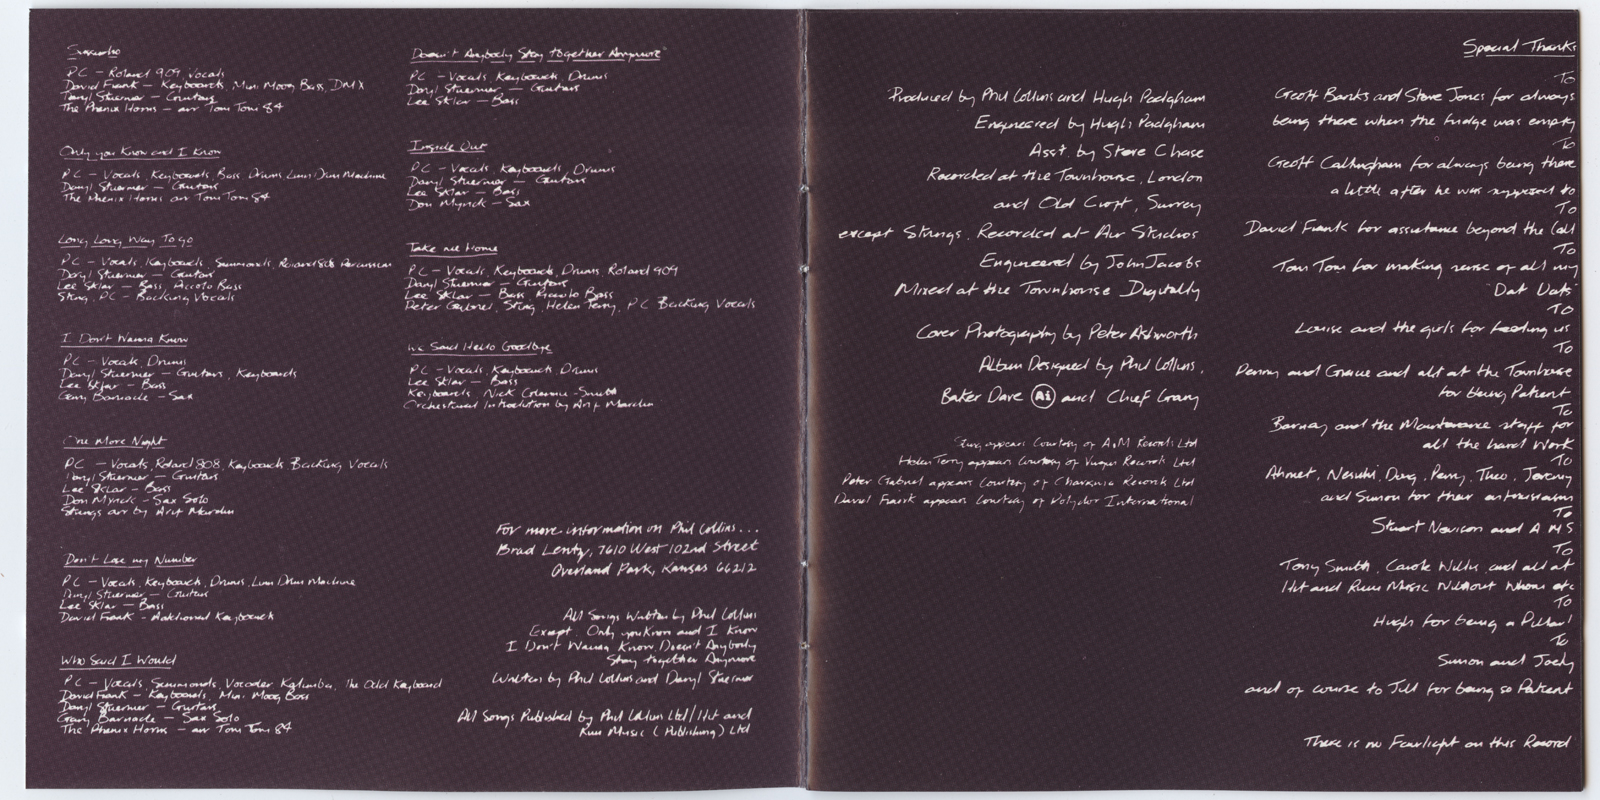 Sussudio
PC - Roland 909, Vocals
David Frank - Keyboards, Mini Moog Bass, DMX
Daryl Stuermer - Guitars
The Phenix Horns - arr Tom Tom 84
Only you Know and I Know
PC - Vocals, Keyboards, Bass Drums, Linn Drum Machine
Daryl Stuermer - Guitars
The Phenix Horns arr Tom Tom 84
Long Long Way To go
PC - Vocals Keyboards, Simmonds, Roland 808 Percussion
Daryl Stuermer - Guitars
Lee Sklar - Bass, Piccolo Bass
Sting, PC - Backing Vocals
I Don't Wanna Know
PC - Vocals, Drums
Daryl Stuermer - Guitars, Keyboards
Lee Sklar - Bass
Gary Barnacle - Sax
One More Night
PC - Vocals, Roland 808, Keyboards Backing Vocals
Daryl Stuermer - Guitars
Lee Sklar - Bass
Don Myrick - Sax Solo
Strings arr by Arif Mardin
Don't Lose my Number
PC - Vocals, Keyboards, Drums, Linn Drum Machine
Daryl Stuermer - Guitars
Lee Sklar - Bass
David Frank - Additional Keyboards
Who Said I Would
PC - Vocals, Simmonds, Vocoder Kalimba, the Odd Keyboard
David Frank - Keyboards, Mini Moog Bass
Daryl Stuermer - Guitars
Gary Barnacle - Sax Solo
The Phenix Horns - arr Tom Tom 84
Doesn't Anybody Stay together Anymore"
PC - Vocals, Keyboards, Drums
Daryl Stuermer - Guitars
Lee Sklar - Bass
Inside Out
PC - Vocals, Keyboards, Drums
Daryl Stuermer - Guitars
Lee Sklar - Bass
Don Myrick - Sax
Take me Home
PC - Vocals, Keyboards, Drums, Roland 909
Daryl Stuermer - Guitars
Lee Sklar - Bass, Piccolo Bass
Peter Gabriel, Sting, Helen Terry, PC Backing Vocals
We Said Hello Goodbye
PC - Vocals, Keyboards, Drums
Lee Sklar - Bass
Keyboards, Nick Glennie-Smith
Orchestral Introduction by Arif Mardin
For more information on Phil Collins...
Brad Lentz, 7610 West 102nd Street
Overland Park, Kansas 66212
All Songs Written by Phil Collins
Except: Only you Know and I Know
I Don't Wanna Know, Doesn't Anybody
Stay together Anymore
Written by Phil Collins and Daryl Stuermer
All Songs Published by Phil Collins Ltd/Hit and
Run Music (Publishing) Ltd
Produced by Phil Collins and Hugh Padgham
Engineered by Hugh Padgham
Asst. by Steve Chase
Recorded at the Townhouse, London
and Old Croft, Surrey
except Strings, Recorded at Air Studios
Engineered by John Jacobs
Mixed at the Townhouse Digitally
Cover Photography by Peter Ashworth
Album Designed by Phil Collins,
Baker Dave Ai and Chief Gray
Sting appears Courtesy of A&M Records Ltd
Helen Terry appears Courtesy of Virgin Records Ltd
Peter Gabriel appears Courtesy of Charisma Records Ltd
David Frank appears Courtesy of Polydor International
Special Thanks
To
Geoff Banks and Steve Jones for always
being there when the fridge was empty
To
Geoff Callingham for always being there
a little after he was supposed to
To
David Frank for assistance beyond the Call
To
Tom Tom for making sense of all my
'Dat Dats'
To
Louise and the girls for feeding us
To
Penny and Gracie and all at the Townhouse
for being Patient
To
Barney and the Maintenance staff for
all the hard Work
To
Ahmet, Nesuhi, Doug, Perry, Theo, Jeremy
and Simon for their enthusiasm
To
Stuart Nevison and AMS
To
Tony Smith, Carole Willis, and all at
Hit and Run Music Without Whom etc
To
Hugh for being a Pillar!
To
Simon and Joely
and of course to Jill for being so Patient
There is no Fairlight on this Record